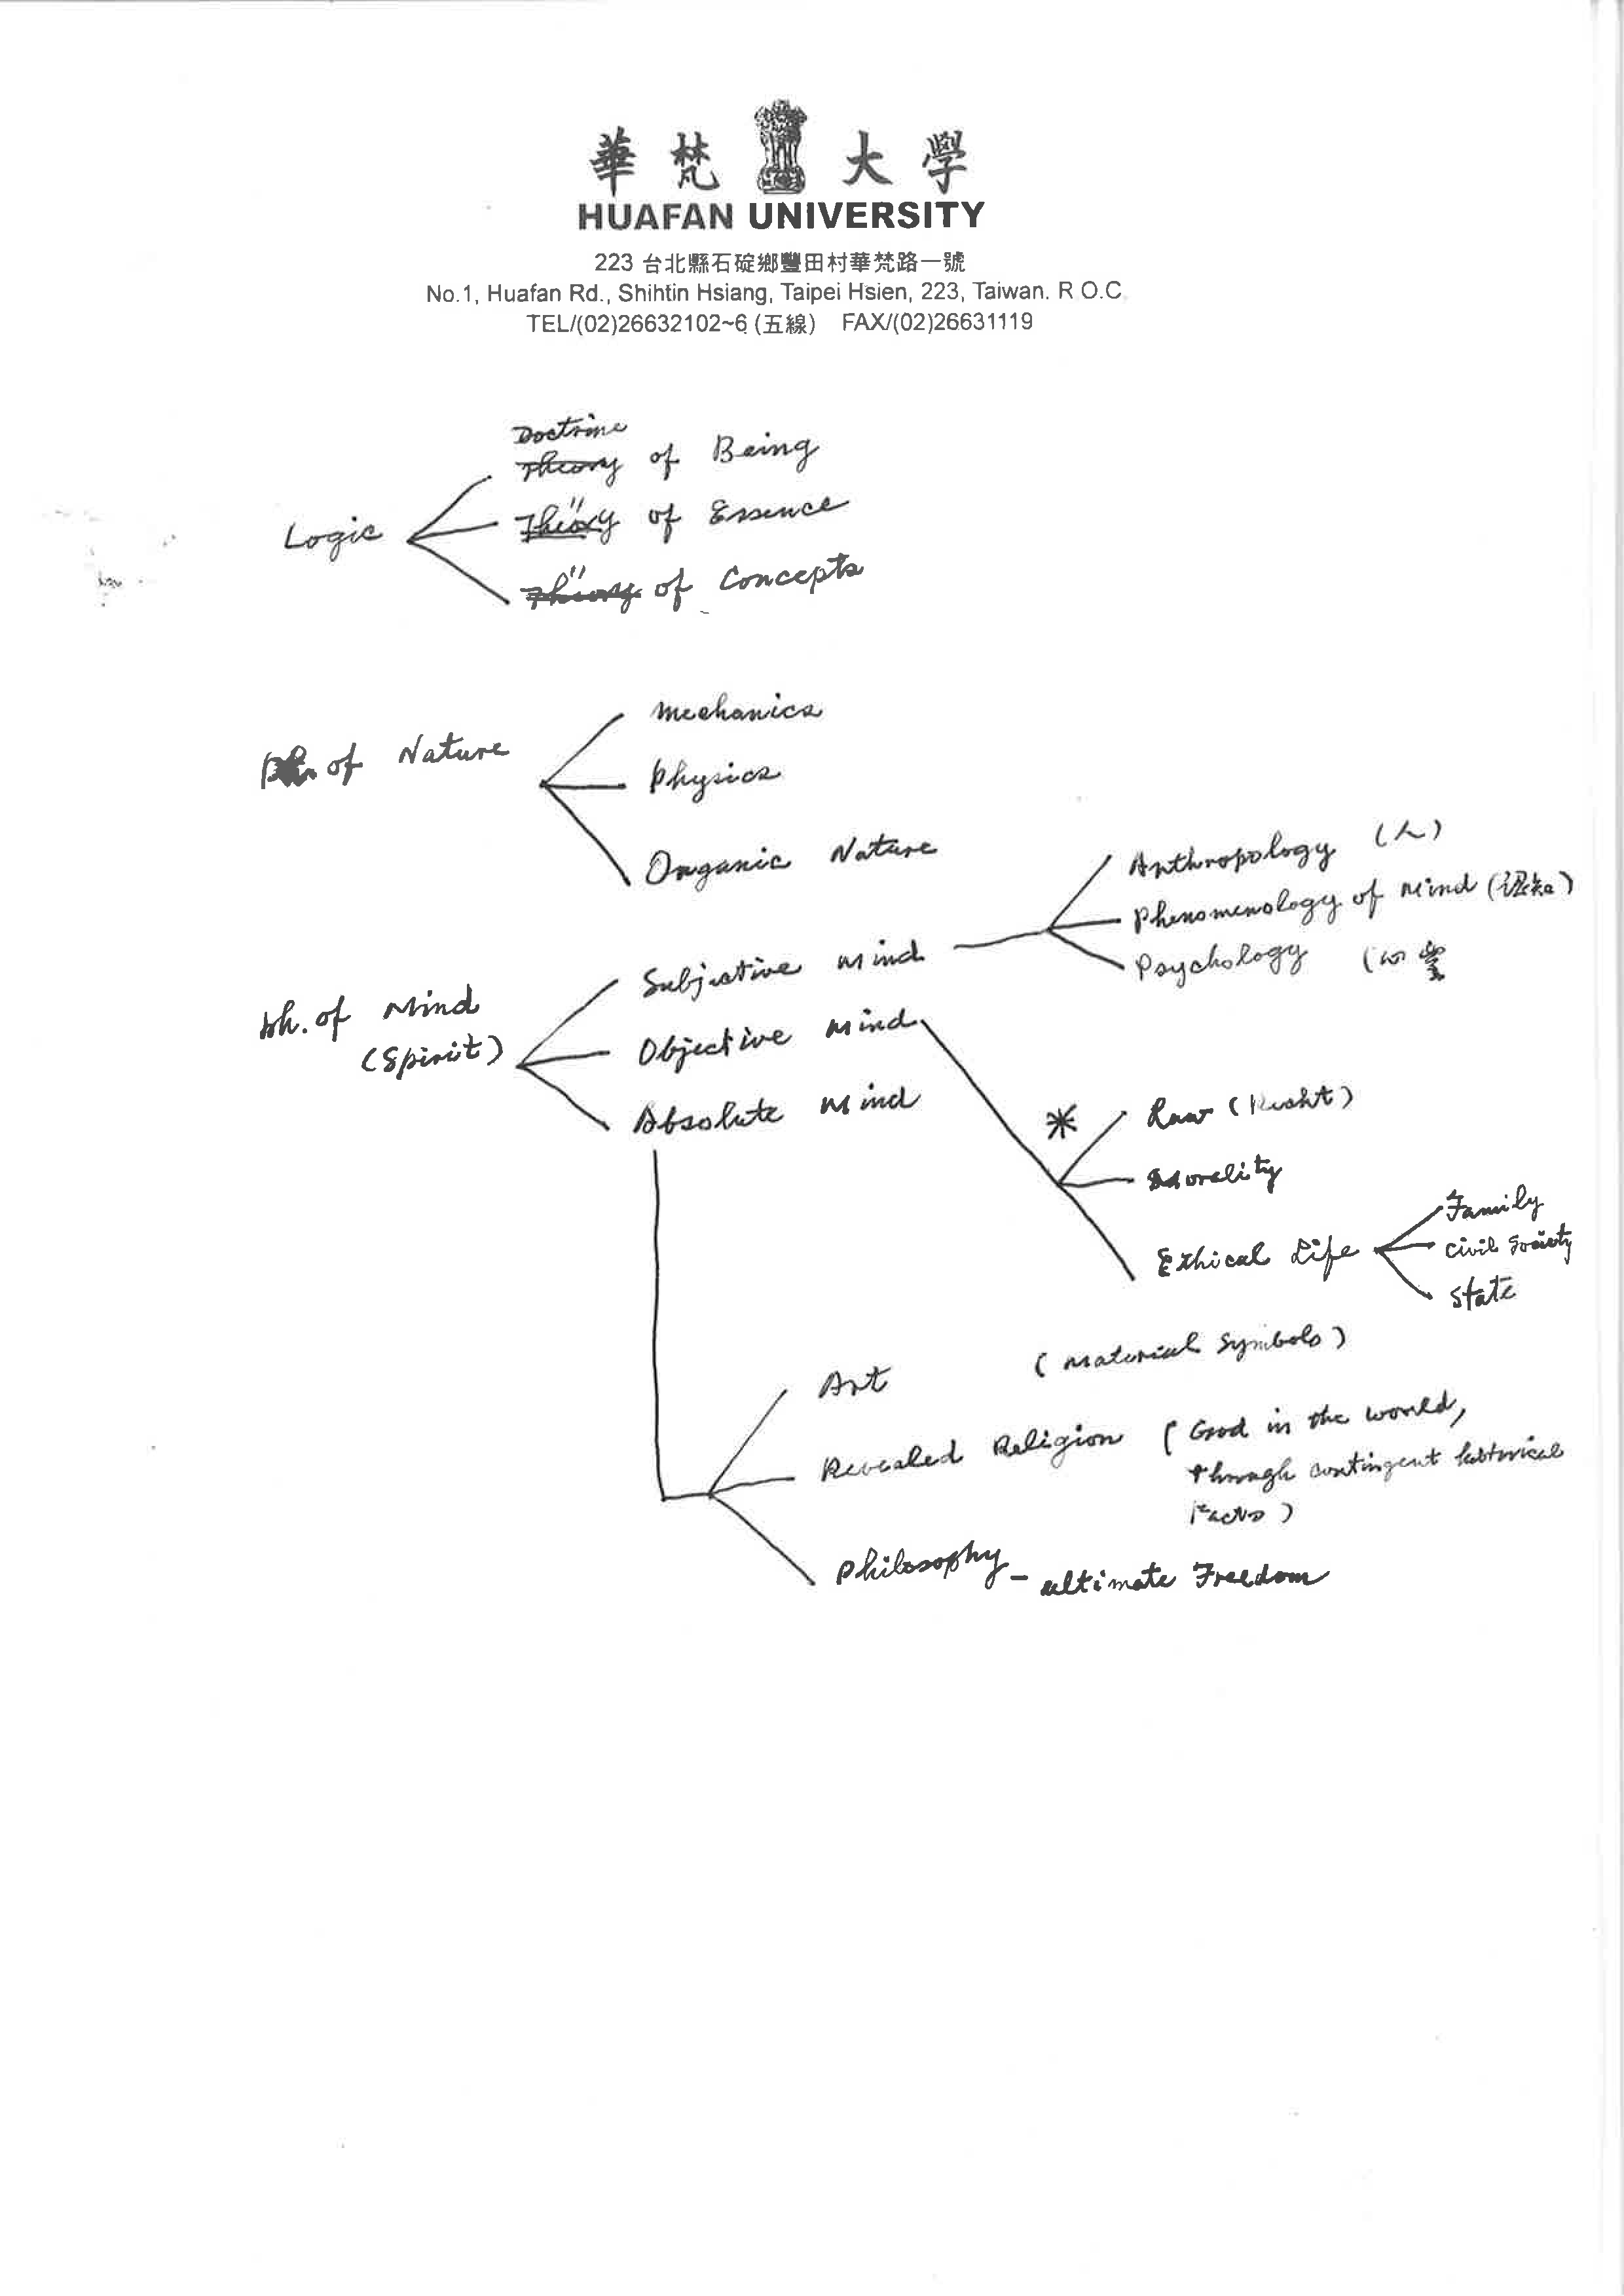 華梵大學
HUAFAN UNIVERSITY
223 台北縣石碇鄉豐田村華梵路一號
No.1, Huafan Rd., Shihtin Hsiang, Taipei Hsien, 223, Taiwan. R.O.C.
TEL/(02)26632102~6 (五線) FAX/(02)26631119
Doctrine
Theory of Being
Logic
Theory " of Essence
Theory " of Concepts
Mechanics
Ph. of Nature
Physics
Organic Nature
Anthropology (人)
Phenomenology of Mind (認知)
Subjective Mind
Psychology (心靈
Ph. of Mind
(Spirit)
Objective Mind
Absolute Mind
* Law (Right)
Morality
Ethical Life
Family
Civil Society
State
Art (Material Symbols)
Revealed Religion (God in the world,
through contingent historical
Facts)
Philosophy - ultimate Freedom